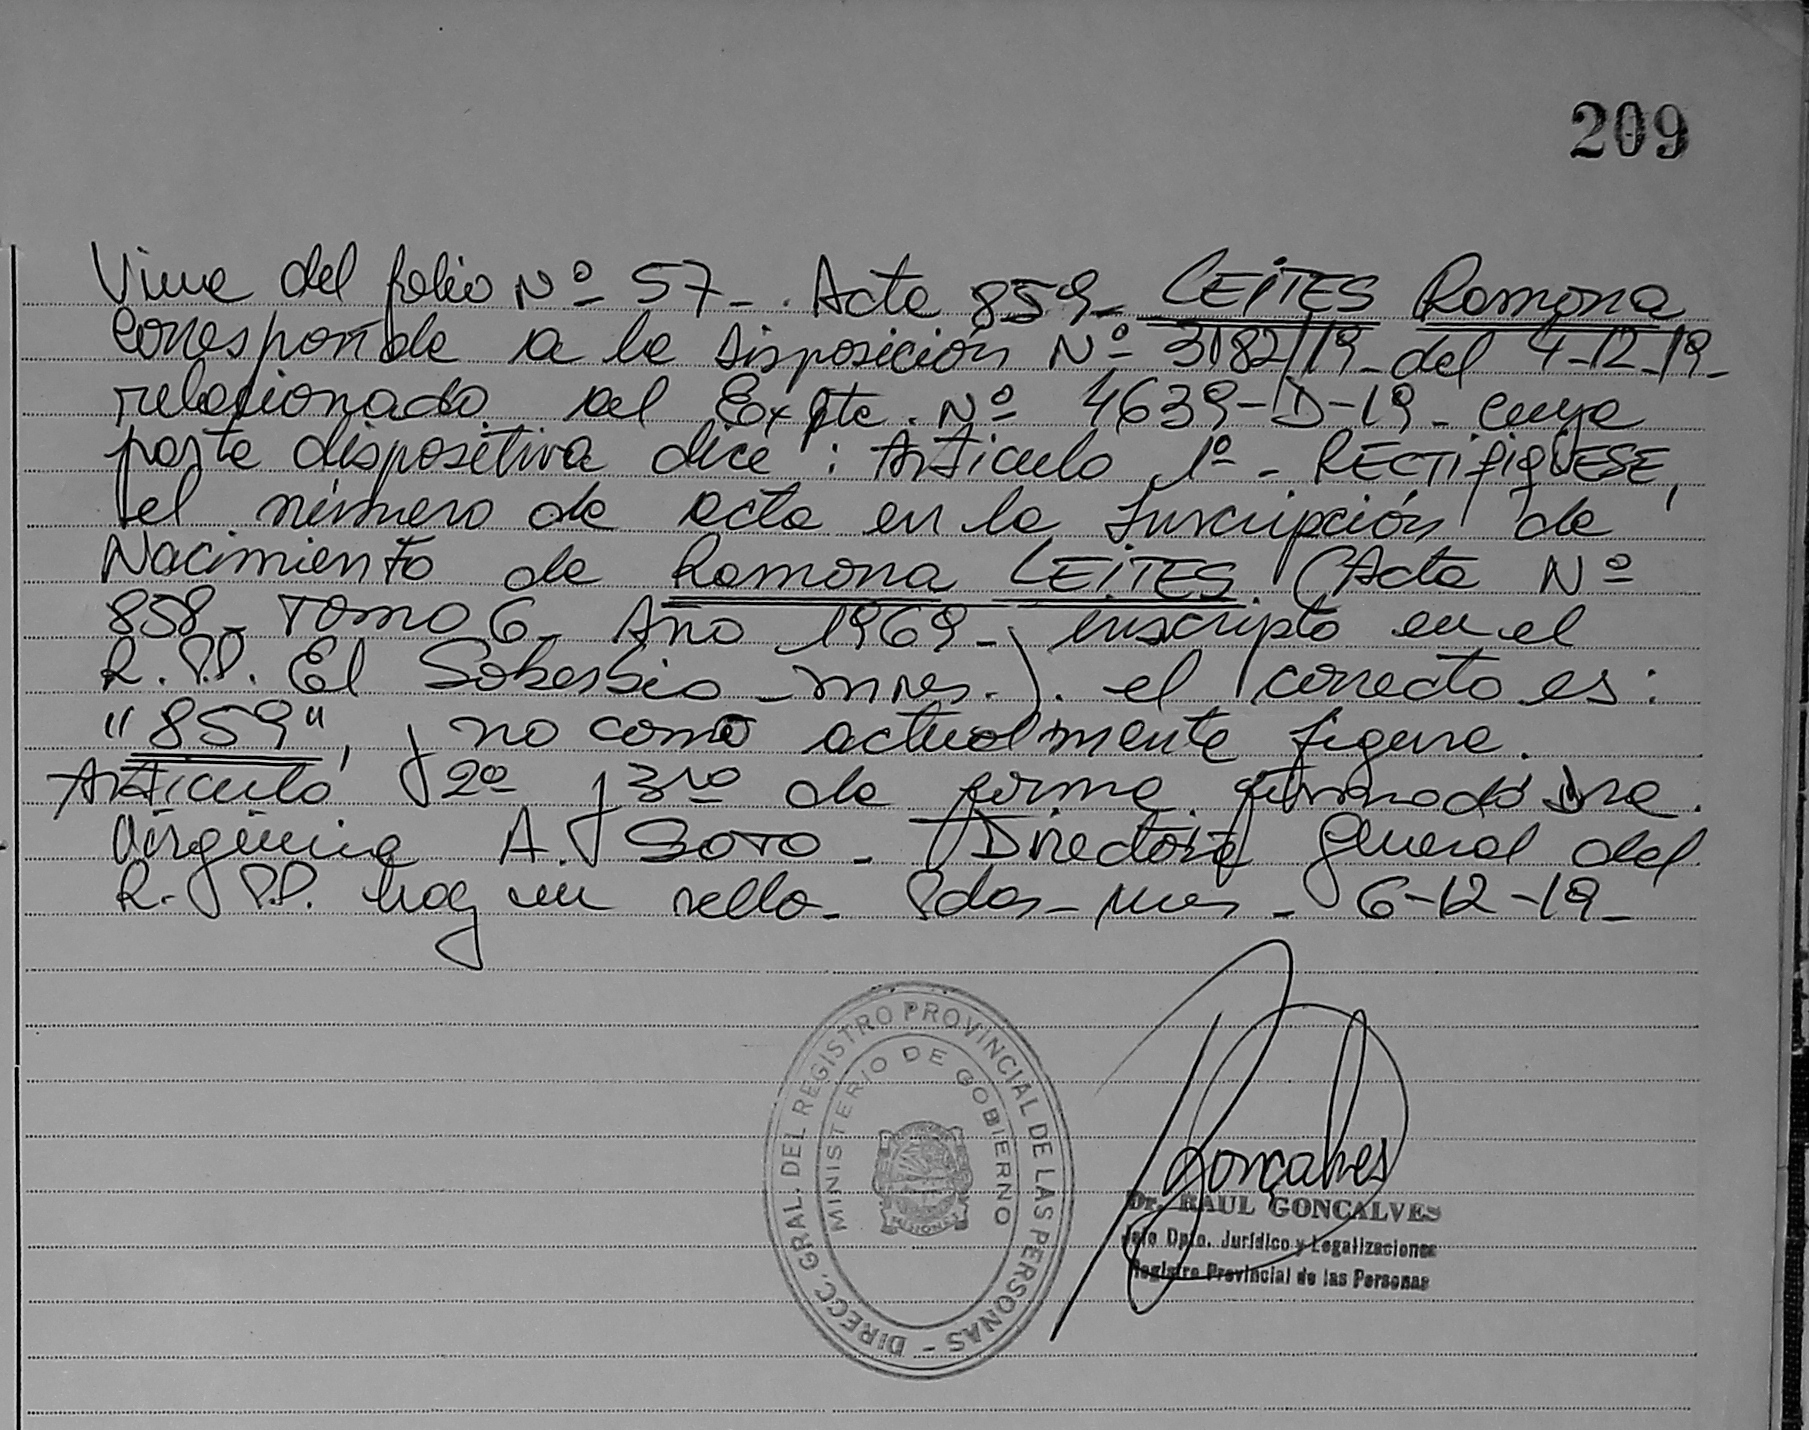 209
Viene del folio Nº 57-. Acta 859- LEITES Ramona
corresponde a la Disposición Nº 3182/19- del 4-12-19-
relacionado al Expte. Nº 4639-D-19- cuya
parte dispositiva dice: Artículo 1º- RECTIFIQUESE,
el número de acta en la Inscripción de
Nacimiento de Ramona LEITES. (Acta Nº
858- Tomo 6- Año 1969-, inscripto en el
R.P.P. El Soberbio-mnes.). el correcto es:
"859", y no como actualmente figura.
Artículo 2º y 3ro de forma. firmado Dra.
Virginia A. Soto- Directora General del
R.P.P. hay un sello- Pdas-Mnes- 6-12-19-
DIRECC. GRAL. DEL REGISTRO PROVINCIAL DE LAS PERSONAS -
MINISTERIO DE GOBIERNO
MISIONES
Goncalves
Dr. RAUL GONCALVES
Jefe Dpto. Jurídico y Legalizaciones
Registro Provincial de las Personas